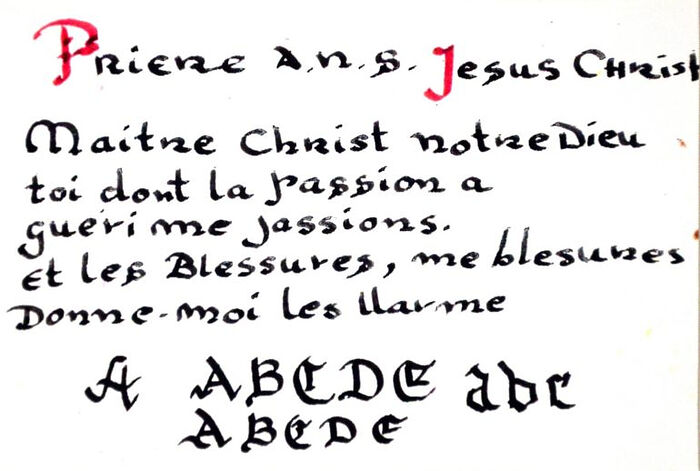 Priere A.N.S. Jesus Christ
Maitre Christ notre Dieu
toi dont la passion a
guéri me passions.
Et les Blessures, me blesures
Donne-moi les llarme
A ABCDE abc
ABCDE